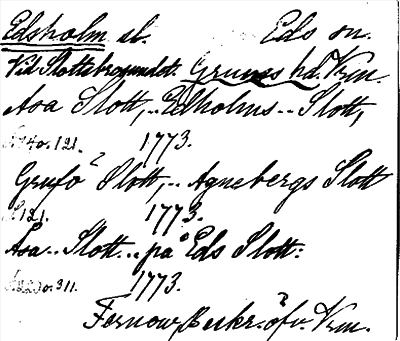 Edsholm sl. Eds sn.
Vid Slottsbrosundet. Grums hd. Vrm.
Åsa Slott, .. Edholms .. Slott,
1773.
Grufö Slott, .. Agnebergs Slott
s. 121. 1773.
Åsa .. Slott .. på Eds Slott:
1773.
Fernow, Beskr. öfv. Vrm.